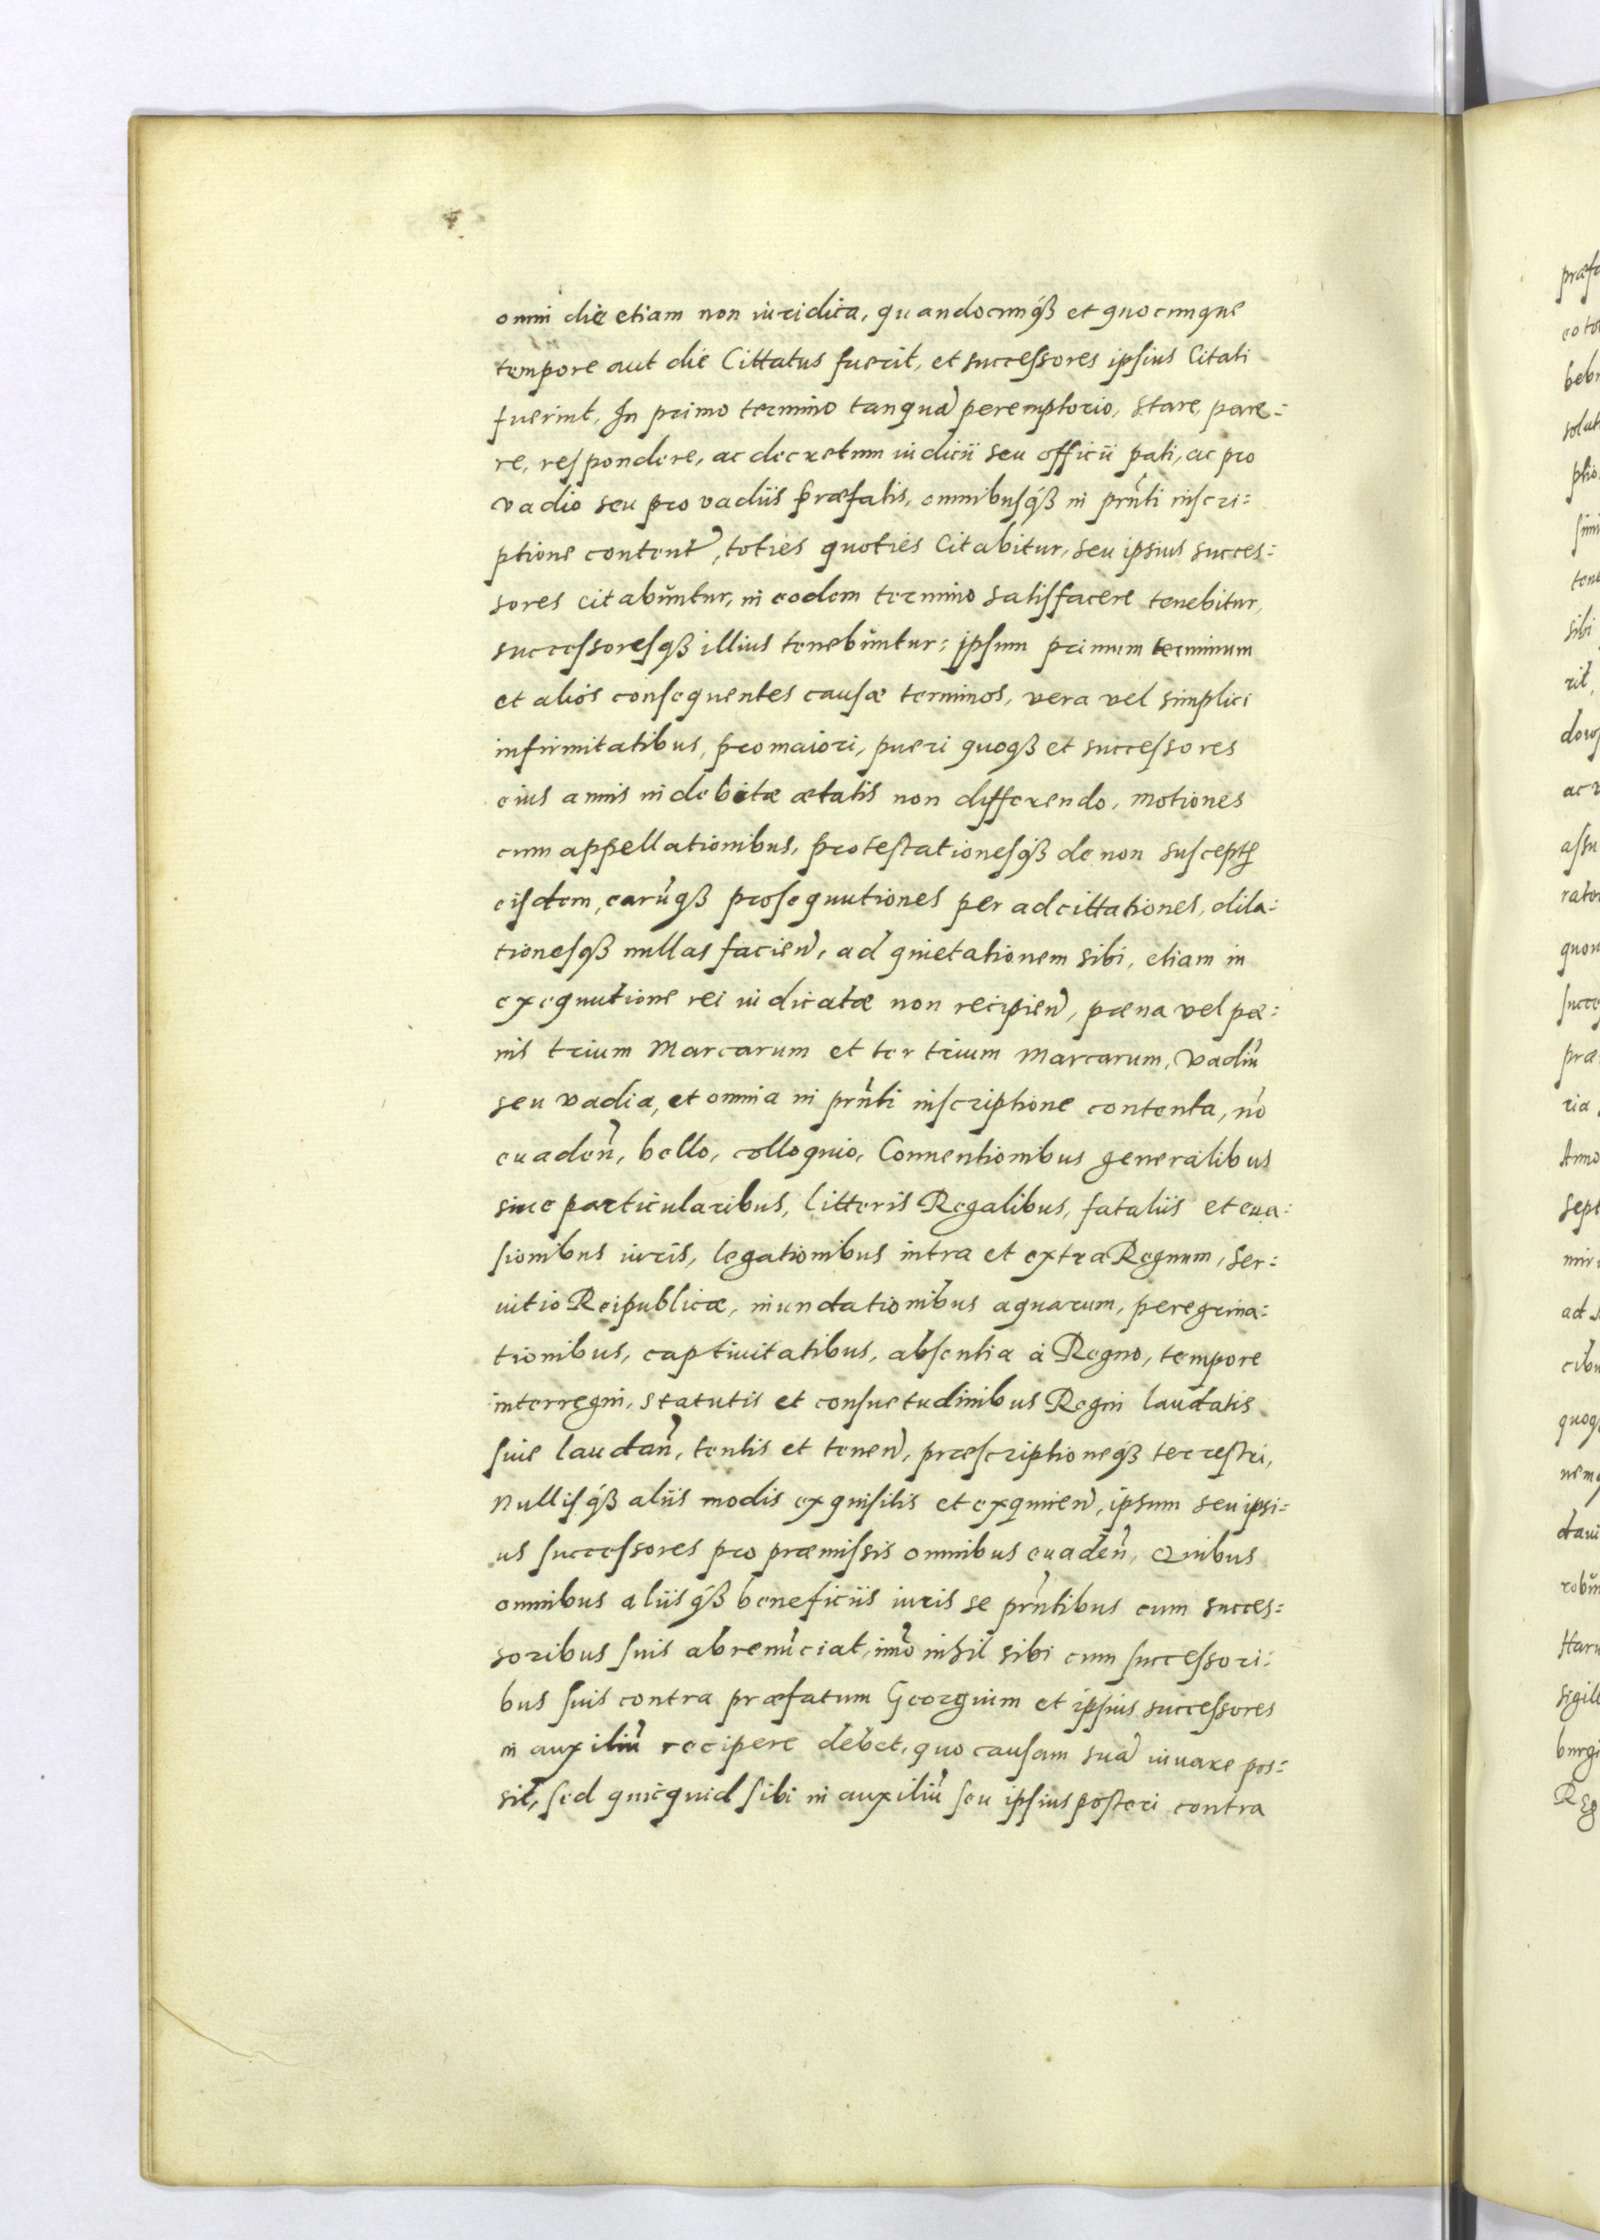 omni die etiam non iuridica, quandocunq́ꝫ et quocunque
tempore aut die Cittatus fuerit, et succeſsores ipſius Citati
fuerint, In primo termino tanquã peremptorio, stare, pare:
re, reſpondere, ac decretum iudicii seu officii pati, ac pro
vadio seu pro vadiis præfatis, omnibuſq́ꝫ in prñti inſcri:
ptione content̃, toties quoties Citabitur, seu ipsius succes:
sores citabũntur, in eodem termino satiſfacere tenebitur,
succeſsoreſqꝫ illius tenebũntur: ipſum primum terminum
et alios conſequentes cauſæ terminos, vera vel simplici
infirmitatibus, pro maiori, pueri quoqꝫ et succeſsores
eius annis indebitæ ætatis non differendo, motiones
cum appellationibus, proteſtationeſq́ꝫ de non suſcept̃
eiſdem, earũqꝫ proſequutiones per adcittationes, dila:
tioneſqꝫ nullas facien̄, ad quietationem sibi, etiam in
exequutione rei iudicatæ non recipien̄, pæna vel pæ:
nis trium Marcarum et ter trium marcarum, vadiũ
seu vadia, et omnia in prñti inſcriptione contenta, nõ
euaden̄, bello, colloquio, Conuentionibus generalibus
siue particularibus, litteris Regalibus, fataliis et eua:
ſionibus iuris, legationibus intra et extra Regnum, ser:
uitio Reipublicæ, inundationibus aquarum, peregrina:
tionibus, captiuitatibus, abſentia à Regno, tempore
interregni, statutis et conſuetudinibus Regni laudatis
ſiue laudan̄, tentis et tenen̄, præſcriptioneq́ꝫ terreſtri,
Nulliſq́ꝫ aliis modis exquiſitis et exquiren̄, ipſum seu ipsi:
us ſucceſsores pro præmiſsis omnibus euaden̄, Quibus
omnibus aliisq́ꝫ beneficiis iuris se prñtibus cum succes:
soribus ſuis abrenũciat, imõ nihil sibi cum ſucceſsori:
bus ſuis contra præfatum Georgium et ipſius succeſsores
in auxiliũ recipere debet, quo cauſam suã iuuare pos:
sit, ſed quicquid ſibi in auxiliũ ſeu ipſius poſteri contra